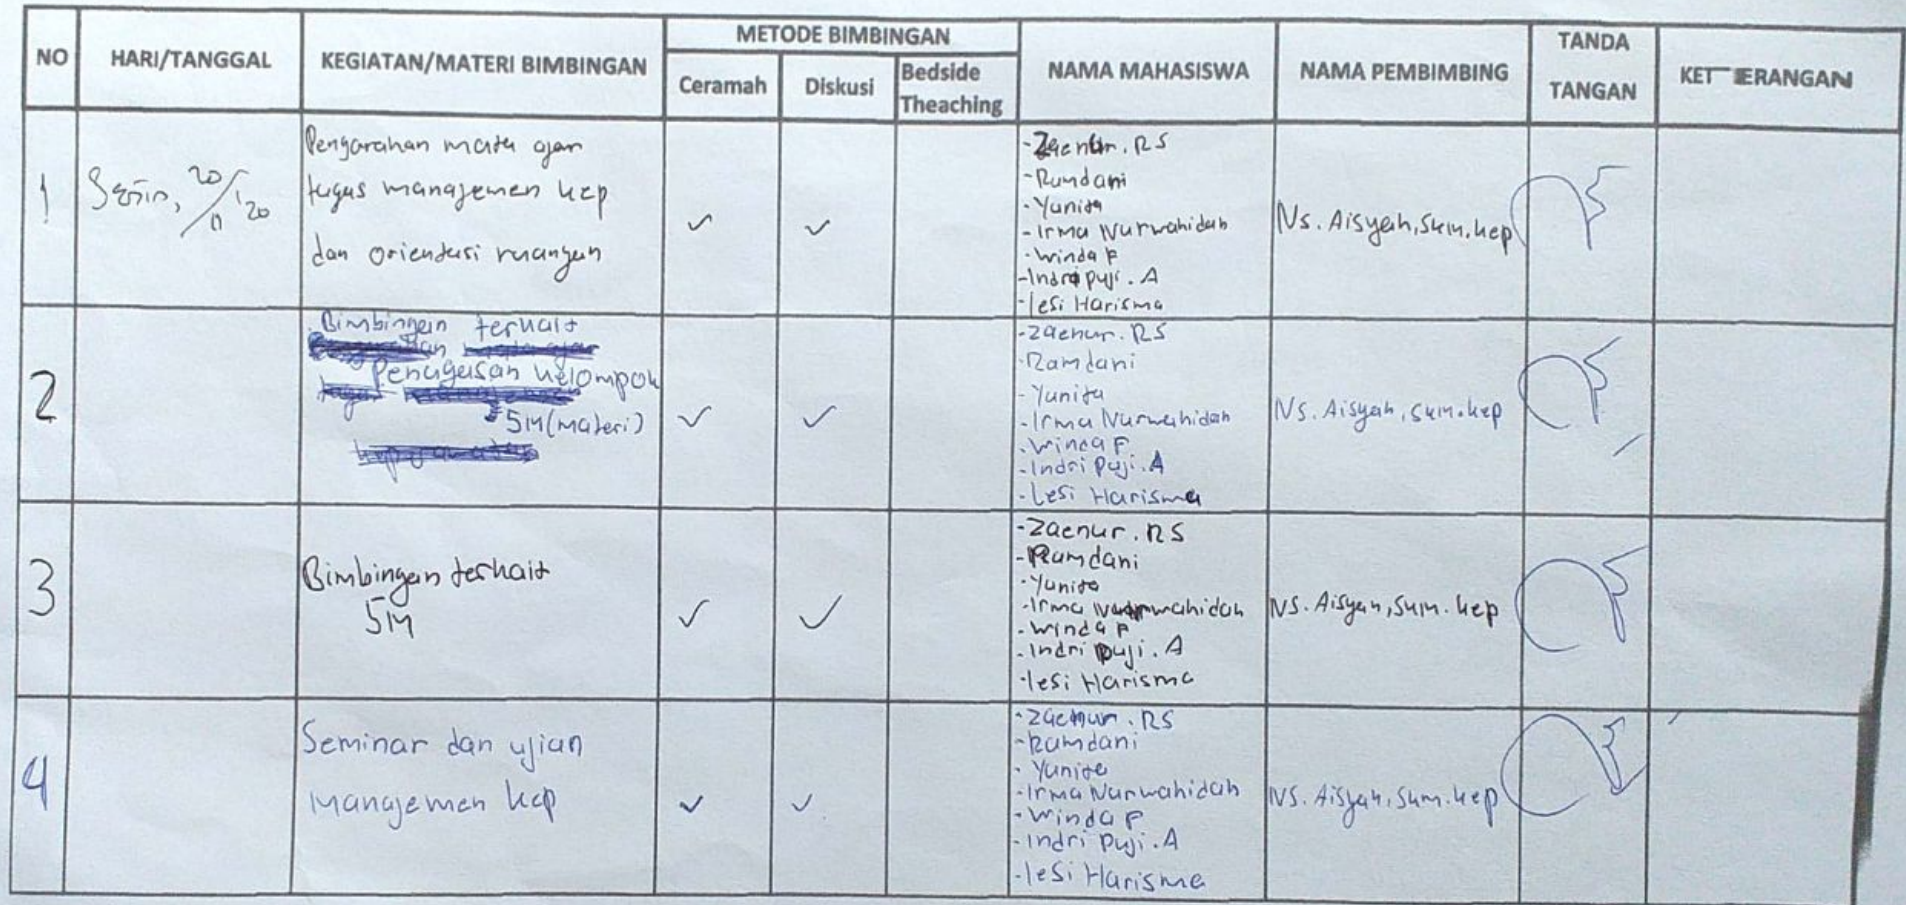 NO
HARI/TANGGAL
KEGIATAN/MATERI BIMBINGAN
METODE BIMBINGAN
Ceramah
Diskusi
Bedside
Theaching
NAMA MAHASISWA
NAMA PEMBIMBING
TANDA
TANGAN
KET ERANGAN
1
Senin, 20/11 '20
Pengarahan mata ajar
tugas manajemen kep
dan orientasi ruangan
✓
✓
- Zaenur. RS
- Ramdani
- Yunita
- Irma Nurwahidah
- Winda F
- Indri puji. A
- lesi Harisma
Ns. Aisyah, Skm.kep
2
Bimbingan terkait
Penugasan kelompok
5M (materi)
✓
✓
- Zaenur. RS
- Ramdani
- Yunita
- Irma Nurwahidah
- Winda F
- Indri Puji. A
- Lesi Harisma
Ns. Aisyah, Skm.kep
3
Bimbingan terkait
5M
✓
✓
- Zaenur. RS
- Ramdani
- Yunita
- Irma Nurwahidah
- Winda F
- Indri puji. A
- lesi Harisma
Ns. Aisyah, Skm.kep
4
Seminar dan ujian
Manajemen kep
✓
✓
- Zaenur. RS
- Ramdani
- Yunita
- Irma Nurwahidah
- Winda F
- Indri puji. A
- lesi Harisma
Ns. Aisyah, Skm.kep